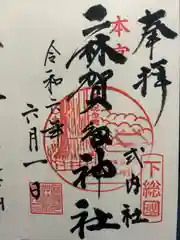 奉拝
式内社
下総國
本宮
麻賀多神社
令和六年
六月一日